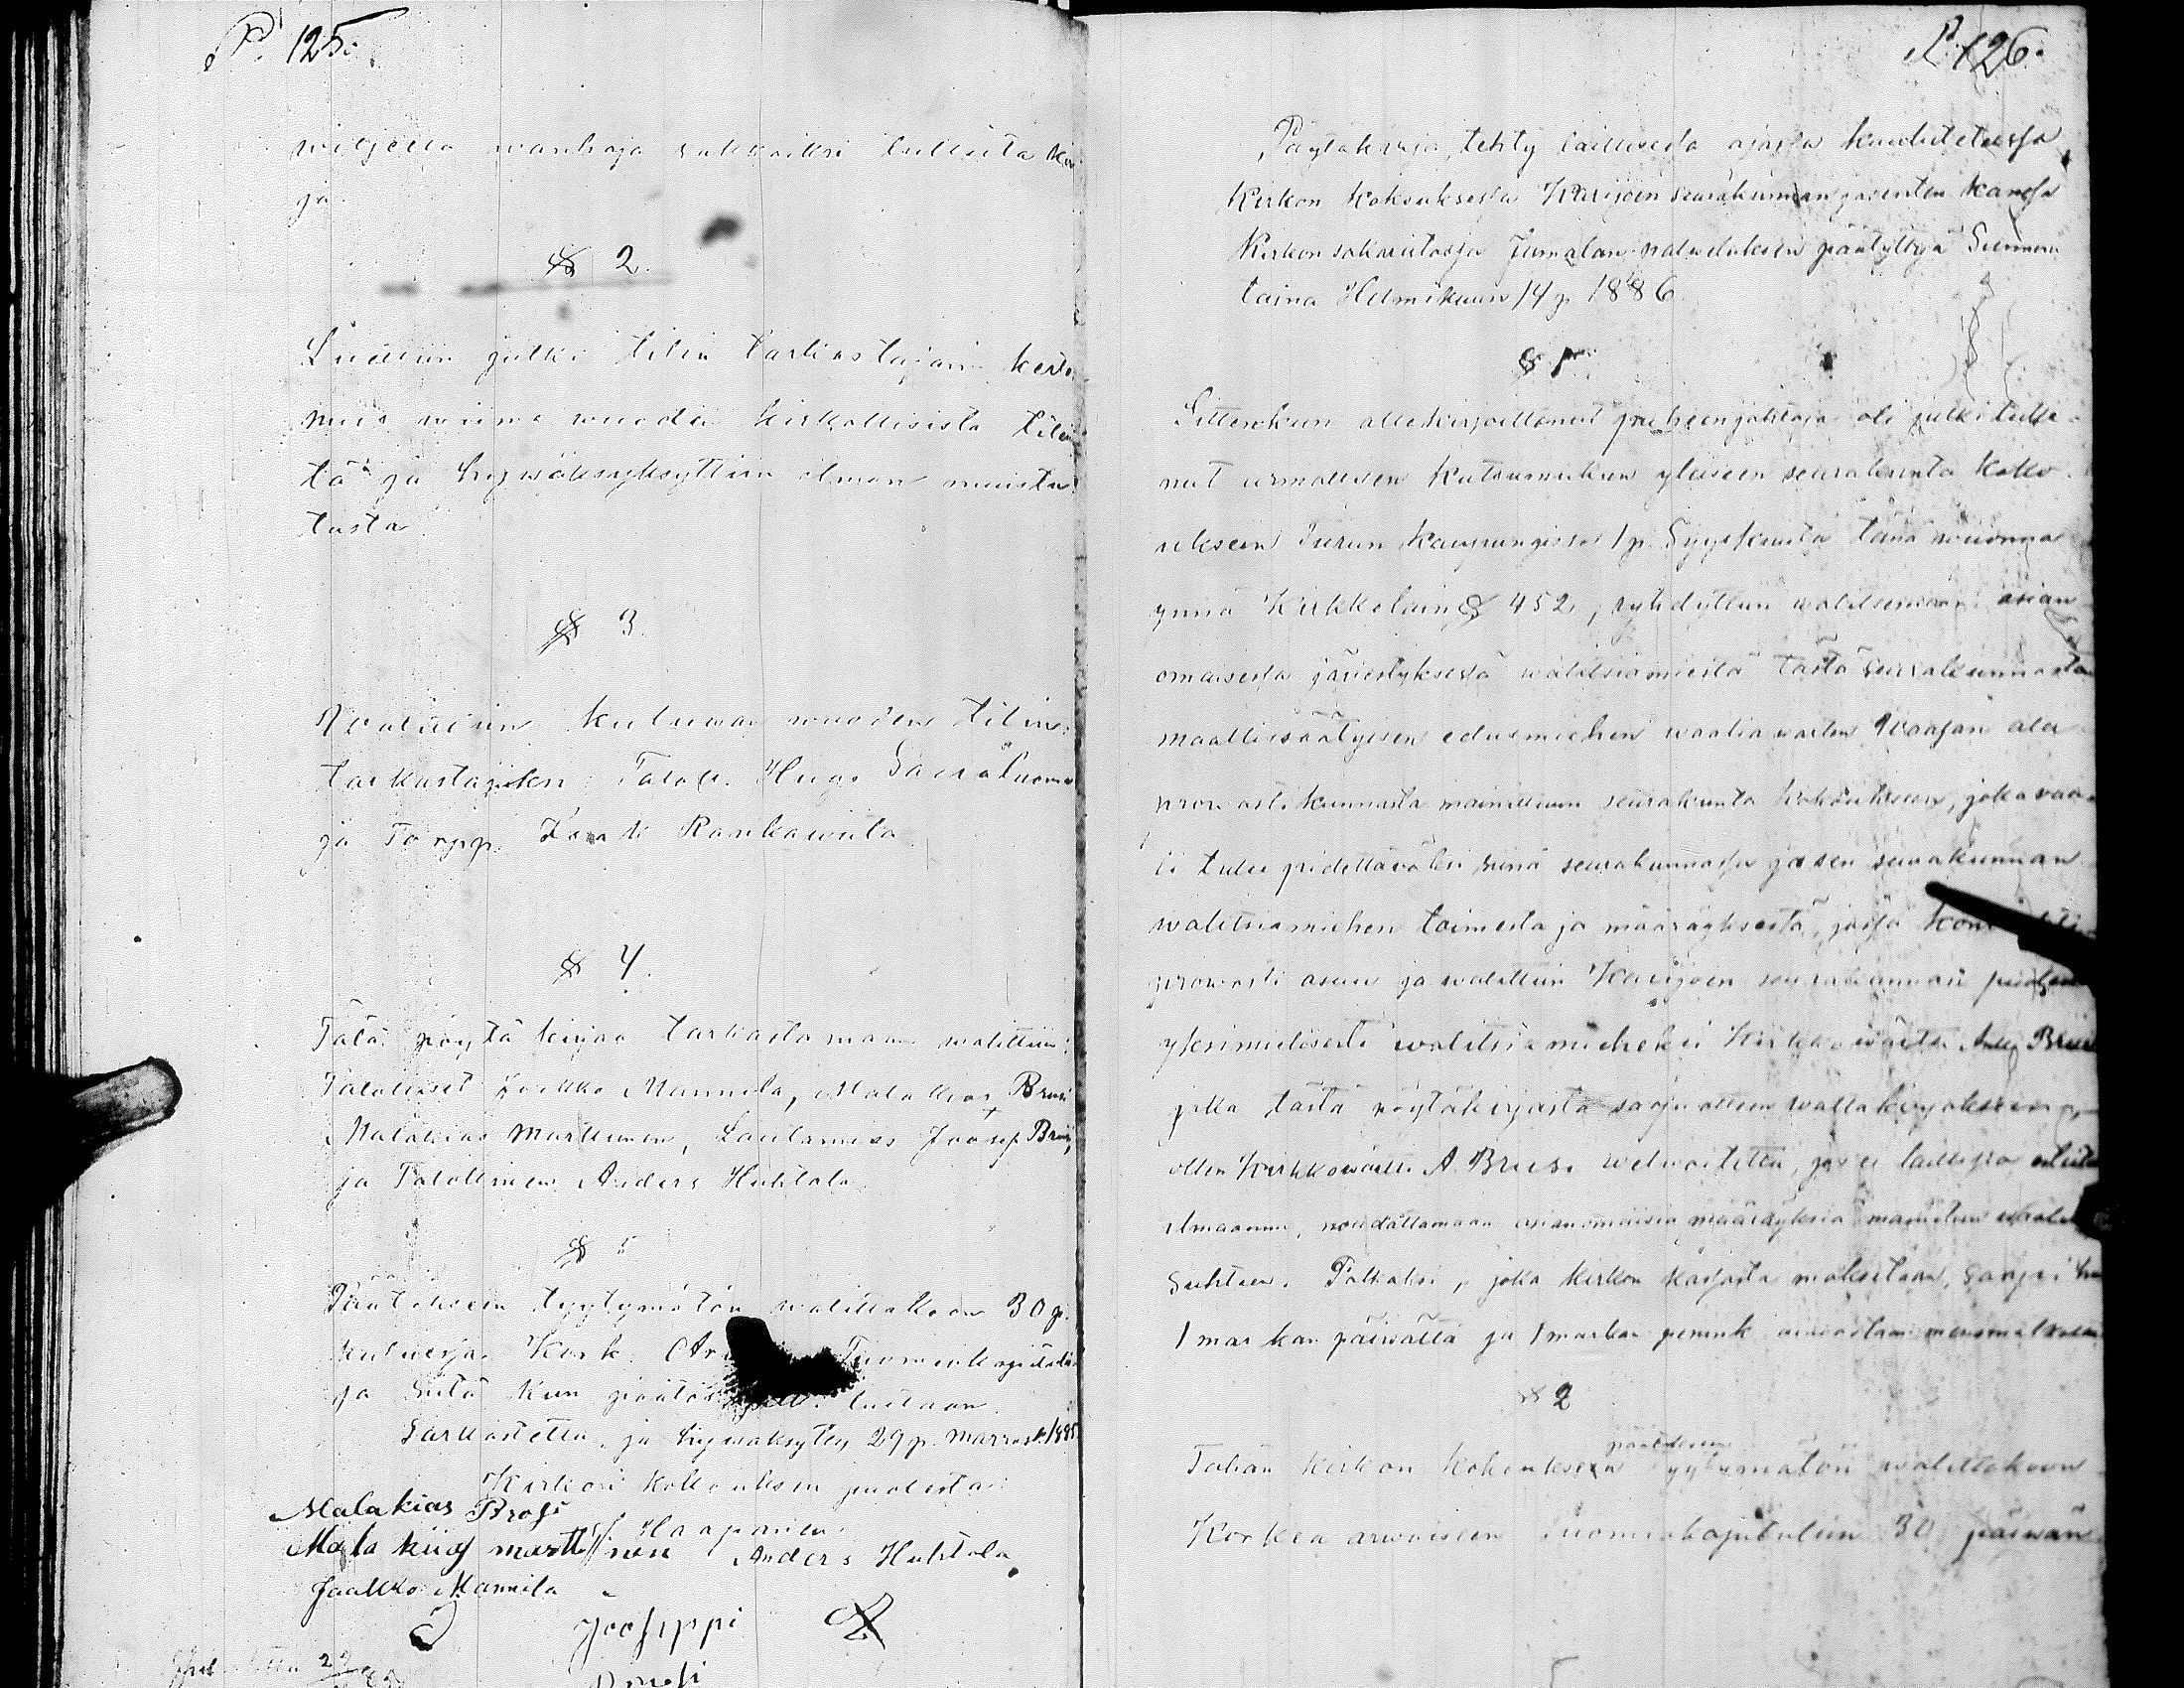 P. 125.
wiljella wanhoja rahkoiksi tulluita kir
ja.
§ 2.
Luettiin julki tilin tarkastajain kerto
mus viime vuoden kirkollisista tilin
tä ja hyväksyksyttiin ilman muistu
tusta
§ 3.
Waalittiin kuluwan wuoden tilin
tarkastajiksi Talok. Hugo Saaraluoma
ja Torpp. Isaak Rankawiita
§ 4.
Tätä pöytä kirjaa tarkastamaan walittiin:
Talolliset Jaakko Mannila, Malakias Brusi
Malakias Marttinen, Lautamies Joosep Brusi,
ja Talollinen Anders Huhtala
§ 5
Päätökseen tyytymätön walittakoon 30 p.
kuluessa Kork. Tuomiokapitulin
ja siitä kun päätös luetaan.
Tarkastettu ja hywäksytty 29 p. marrask. 1885
Kirkon kokouksen puolesta:
Malakias Brosi
Haapanen.
Malakiias marttinen Anders Huhtala
Jaakko Mannila
Jooseppi
Brusi
29
P. 126.
Pöytäkirja, tehty laillisesta ajasta kuulutetussa
Kirkon Kokouksessa Karijoen seurakunnan jäsenten kanssa
Kirkon sakaritossa Jumalan palweluksen päätyttyä Sunnun
taina Helmikuun 14 p. 1886
§ 1
Sittenkun allekirjoittanut puheenjohtaja oli julki lukenut
armollisen kutsumuksen yleiseen seurakunta koko
ukseen Turun kaupungissa 1 p. Syyskuuta tänä wuonna
ynnä Kirkkolain § 452, ryhdyttiin walitsemaan asian
omaisesta järjestyksestä walitsiamiestä tästä seurakunnasta
maallissäätyisen edusmiehen waalia warten Waasan ala
prowastikunnasta mainittuun seurakunta kokoukseen, joka waa
li tulee pidettäväksi siinä seurakunnassa ja sen seurakunnan
walitsiamiehen toimesta ja määräyksestä, jossa
prowasti asuu ja walittiin Karijoen seurakunnan puolesta
yksimielisesti walitsiamieheksi Kirkkowäärti Antti Brusi
joka tästä pöytäkirjasta saapi otteen waltakirjakseen,
ollen Kirkkowäärti A. Brusi welwoitettu, jos ei laillista estettä
ilmaannu, noudattamaan asianomaisia määräyksiä mainitun waalin
suhteen. Palkaksi, joka kirkon kassasta maksetaan, saapi hän
1 markan päiwältä ja 1 markan penink. ainoastaan menomatkalta
§ 2
päätökseen
Tähän kirkon kokouksen tyytymätön walittakoon
Korkea arwoiseen Tuomiokapituliin 30 päiwän